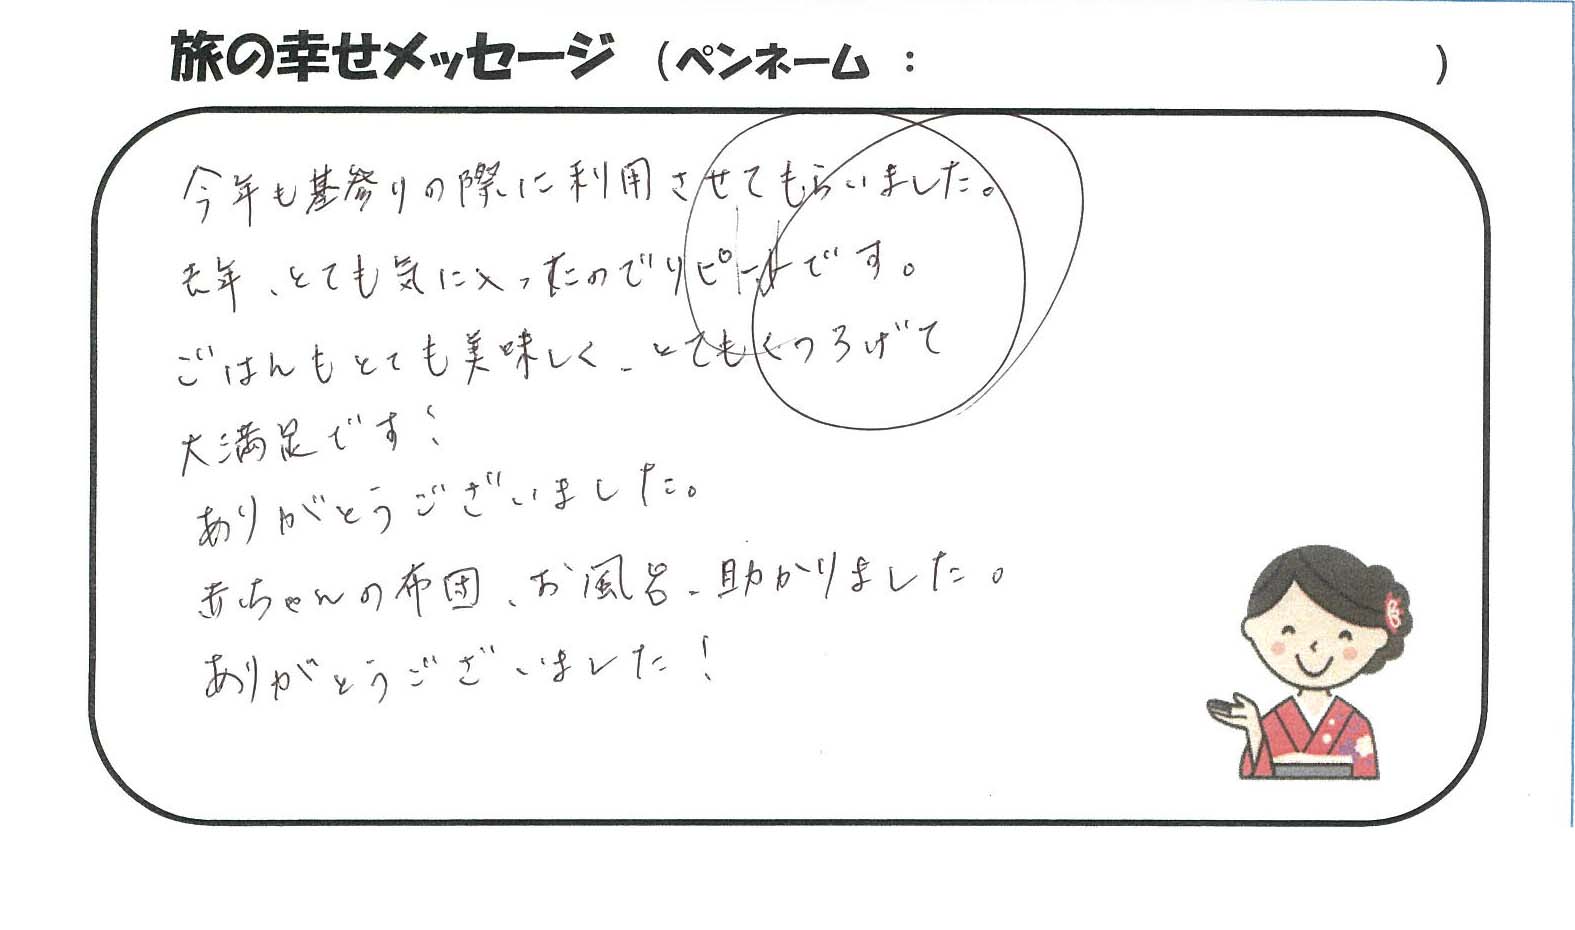 旅の幸せメッセージ (ペンネーム : )
今年も墓参りの際に利用させてもらいました。
去年、とても気に入ったのでリピートです。
ごはんもとても美味しく、とてもくつろげて
大満足です!
ありがとうございました。
赤ちゃんの布団、お風呂、助かりました。
ありがとうございました!